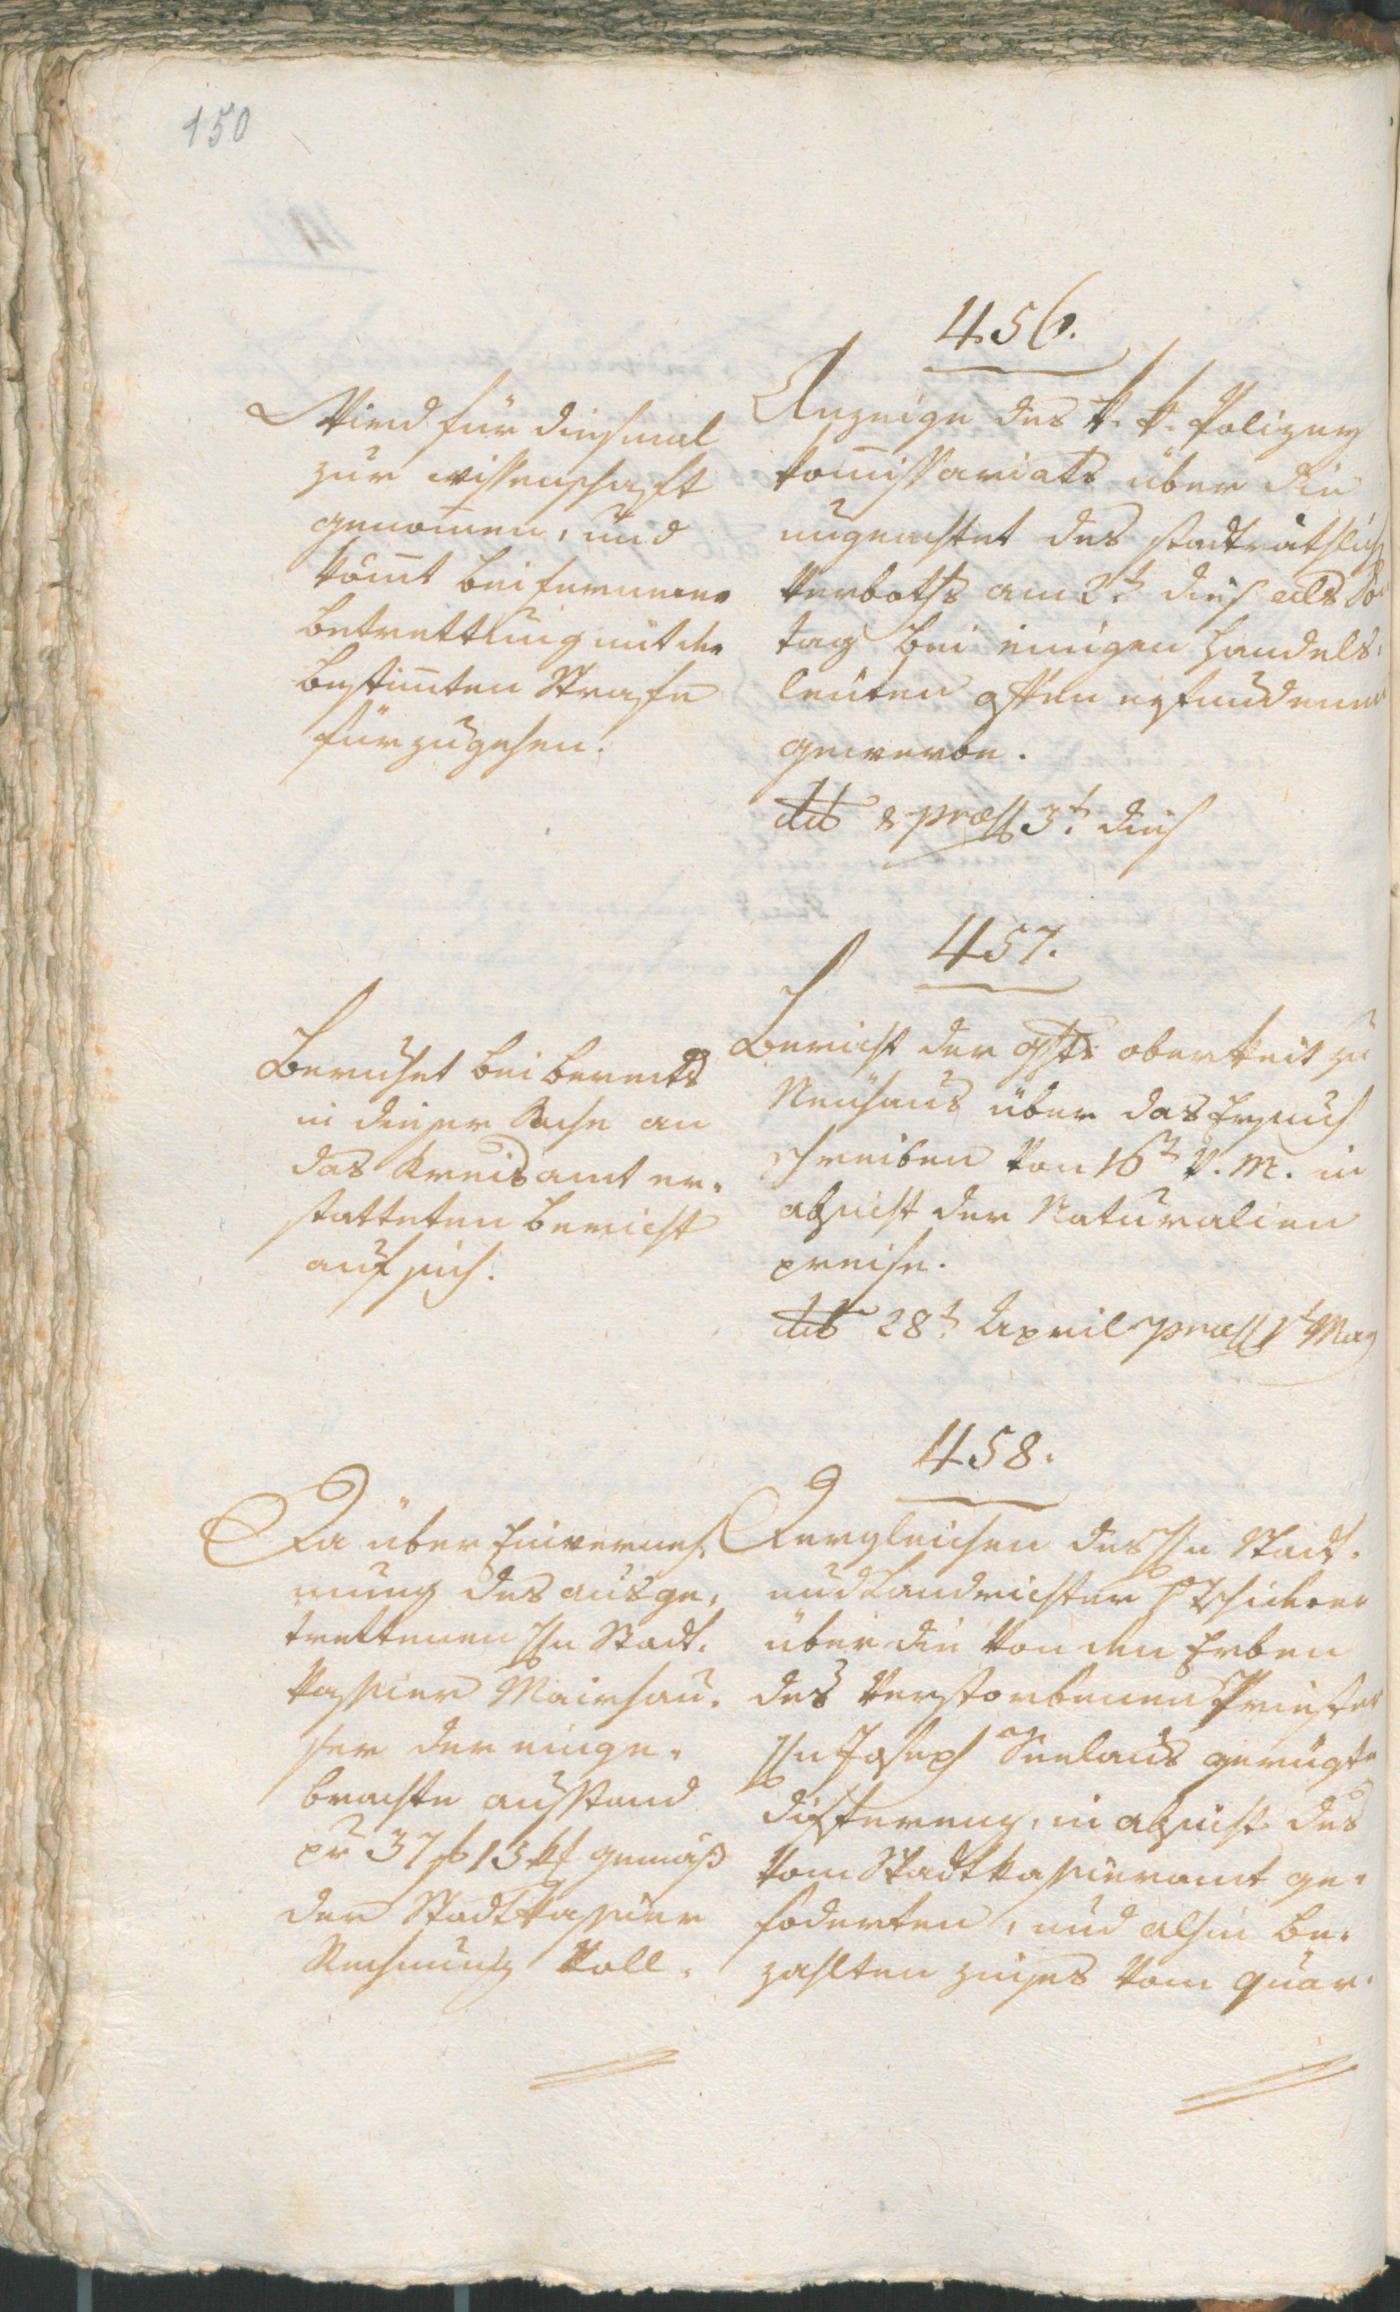 150
456.
Wird für diesmal
zur wissenschaft
genommen, und
kömt bei fernerer
betrettung mit der
bestimten Strafe
fürzugehen.
Anzeige des k. k. Polizey
kommissariats über die
ungeachtet des stadträthlich
Verboths am 2t dies als So
tag bei einigen Handels¬
leuten offen erfundenen
gewerbe.
dto & præss 3t dies
457.
Beruhet bei bereits
in dieser Sache an
das Kreisamt er¬
statteten bericht
auf sich.
Bericht der ghts oberkeit zu
Neuhaus über das Ersuch
schreiben von 16t v. M. in
absicht der Naturalien
preise.
dto 28t April præss 1t May
458.
Da über Einverneh¬
mung des ausge¬
trettenen Hn Stadt¬
kassier Mairhau¬
ser der einge¬
brachte ausstand
pr 37 f 13 kr gemäß
der Stadtkassier
Rechnung voll¬
Vergleichen des Hn Stadt¬
und Landrichter
über die von den Erben
des Verstorbenen Priester
Hn Joseph Seelaus gerügte
differenz, in absicht des
vom Stadtkassieramt ge¬
foderten, und alhin be¬
zahlten zinses vom quar¬